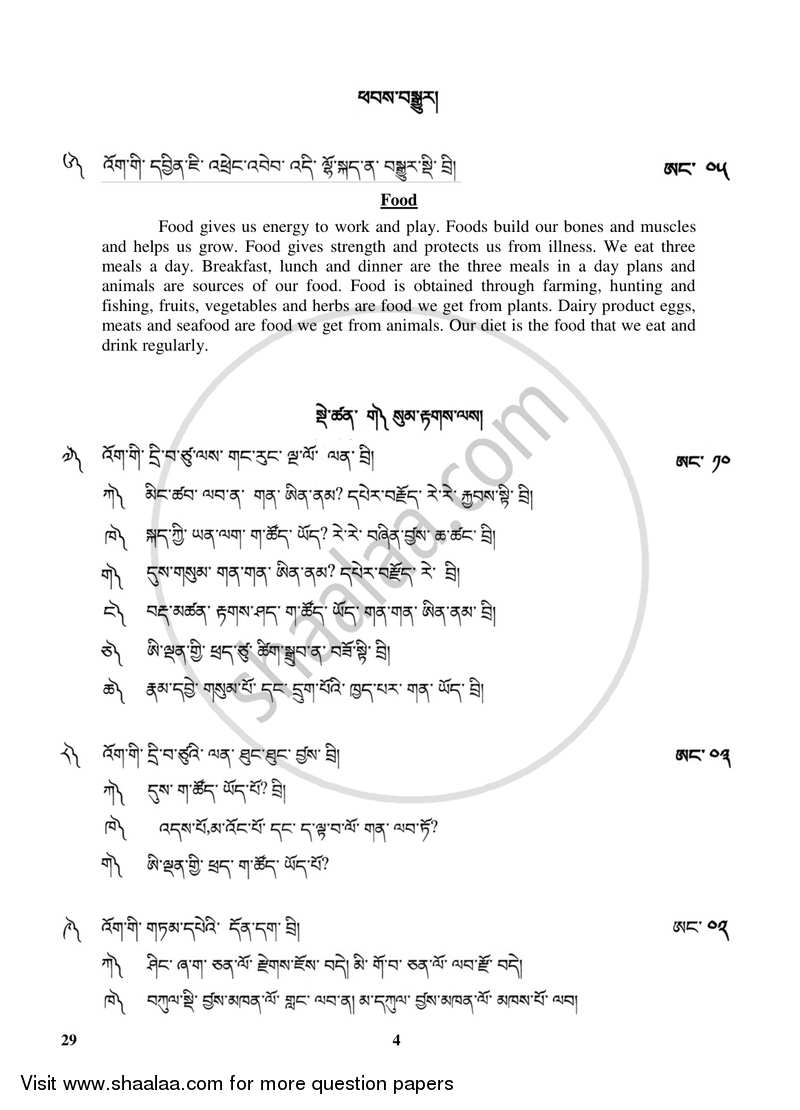 ཕབས་བསྒྱུར།
༦༽ འོག་གི་ དབྱིན་ཇི་ འཕྲེང་འབེབ་ འདི་ ལྷོ་སྐད་ན་ བསྒྱུར་སྡི་ བྲི། ཨང་ ༠༥
Food
Food gives us energy to work and play. Foods build our bones and muscles
and helps us grow. Food gives strength and protects us from illness. We eat three
meals a day. Breakfast, lunch and dinner are the three meals in a day plans and
animals are sources of our food. Food is obtained through farming, hunting and
fishing, fruits, vegetables and herbs are food we get from plants. Dairy product eggs,
meats and seafood are food we get from animals. Our diet is the food that we eat and
drink regularly.
སྡེ་ཚན་ ག༽ སུམ་རྟགས་ལས།
༡༽ འོག་གི་ དྲི་བ་ཙུ་ལས་ གང་རུང་ ལྔ་ལོ་ ལན་ བྲི། ཨང་ ༡༠
ཀ༽ མིང་ཚབ་ ལབ་ན་ གན་ ཨིན་ནམ? དཔེར་བརྗོད་ རེ་རེ་ རྐྱབས་སྟི་ བྲི།
ཁ༽ སྐད་ཀྱི་ ཡན་ལག་ ག་ཚོད་ ཡོད? རེ་རེ་ བཞིན་བྱས་ ཆ་ཚང་ བྲི།
ག༽ དུས་གསུམ་ གན་གན་ ཨིན་ནམ? དཔེར་བརྗོད་ རེ་ བྲི།
ང༽ བརྡ་མཚན་ རྟགས་ཤད་ ག་ཚོད་ ཡོད་ གན་གན་ ཨིན་ནམ་ བྲི།
ཅ༽ ཨི་ལྡན་གྱི་ ཕྲད་ཙུ་ ཚིག་སྒྲུབ་ན་ བཟོ་སྟི་ བྲི།
ཆ༽ རྣམ་དབྱེ་ གསུམ་པོ་ དང་ དྲུག་པོའི་ ཁྱད་པར་ གན་ ཡོད་ བྲི།
༢༽ འོག་གི་ དྲི་བ་ཙུའི་ ལན་ ཐུང་ཐུང་ བྱས་ བྲི། ཨང་ ༠༣
ཀ༽ དུས་ ག་ཚོད་ ཡོད་པོ? བྲི།
ཁ༽ འདས་པོ,མ་འོང་པོ་ དང་ ད་ལྟ་བ་ལོ་ གན་ ལབ་ཏོ?
ག༽ ཨི་ལྡན་གྱི་ ཕྲད་ ག་ཚོད་ ཡོད་པོ?
༣༽ འོག་གི་ གཏམ་དཔེའི་ དོན་དག་ བྲི། ཨང་ ༠༢
ཀ༽ ཤིང་ ཞ་ག་ ཅན་ལོ་ རྫེགས་ཛོས་ བདེ། མི་ གོ་བ་ ཅན་ལོ་ ལབ་རྫོ་ བདེ།
ཁ༽ བཀུལ་སྡི་ བྱས་མཁན་ལོ་ གླང་ ལབ་ན། མ་དཀུལ་ བྱས་མཁན་ལོ་ མཁས་པོ་ ལབ།
29 4
shaalaa.com
Visit www.shaalaa.com for more question papers